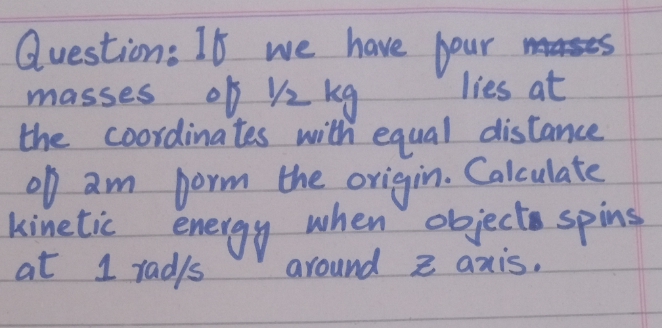 Question: If we have four masses
masses of 1/2 kg lies at
the coordinates with equal distance
of 2m form the origin. Calculate
kinetic energy when objects spins
at 1 rad/s around z axis.